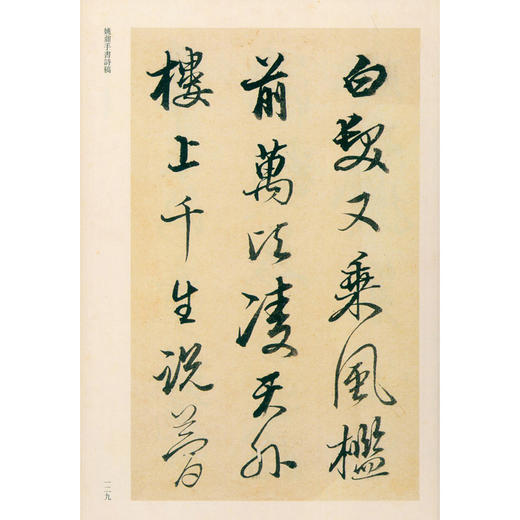 白髮又乘風檻
前萬凌天外
樓上千生説夢
姚鼐手書詩稿
一二九